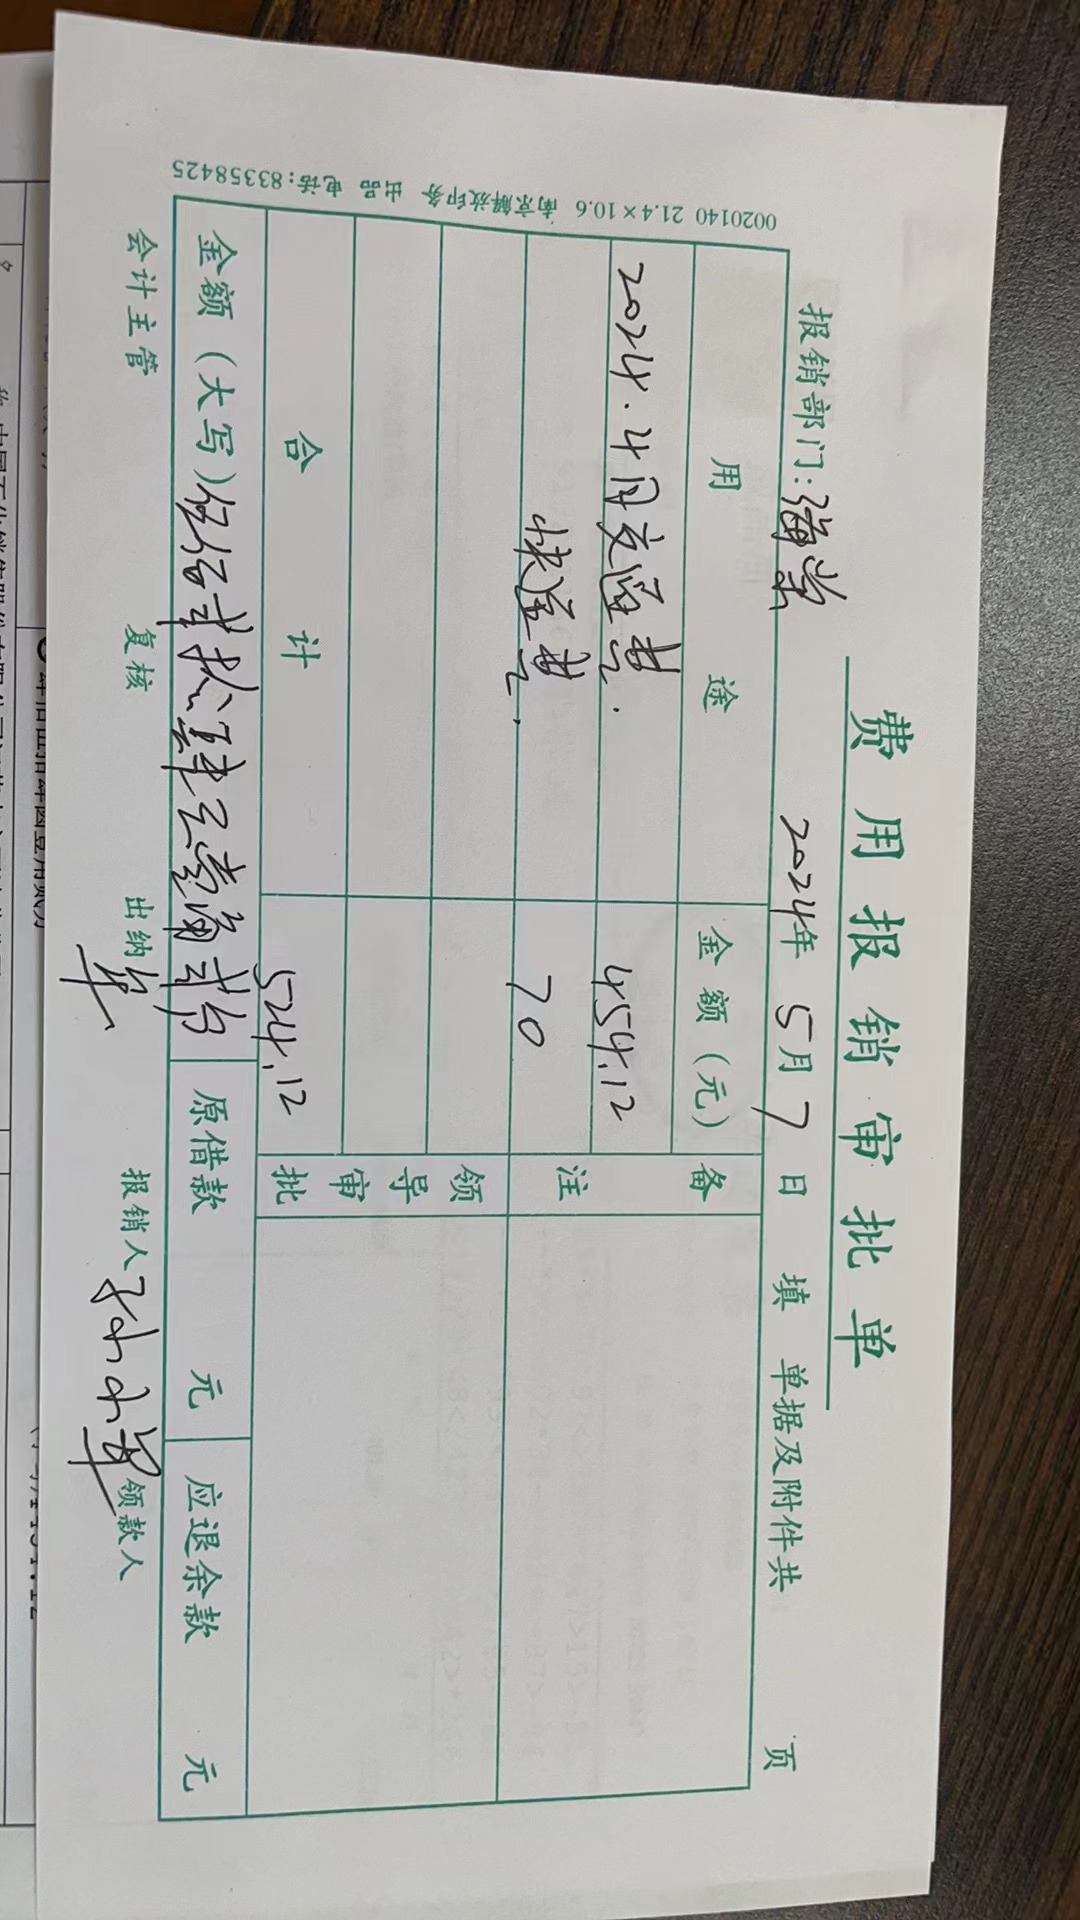 费用报销审批单
报销部门：海棠 2024年 5月 7日 填 单据及附件共 页
用途 金额（元） 备注
2024.4月交通费. 454.12
快递费. 70
合计 524.12
领导审批
金额（大写）伍佰贰拾肆元壹角贰分 原借款 元 应退余款 元
会计主管 复核 出纳 报销人 领款人
0020140 21.4×10.6 南京解放印务 出品 电话：83358425